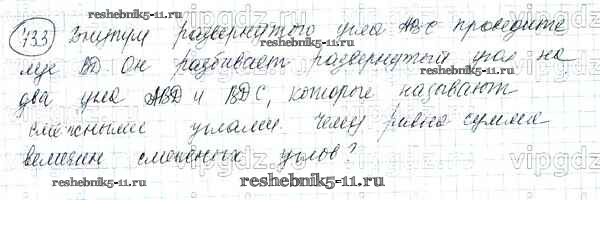 733 Внутри развернутого угла ABC проведите
луч BD. Он разбивает развернутый угол на
два угла ABD и BDC, которые называют
смежными углами. Чему равна сумма
величин смежных углов?
reshebnik5-11.ru
reshebnik5-11.ru
reshebnik5-11.ru
reshebnik5-11.ru
reshebnik5-11.ru
vipgdz
vipgdz
vipgdz